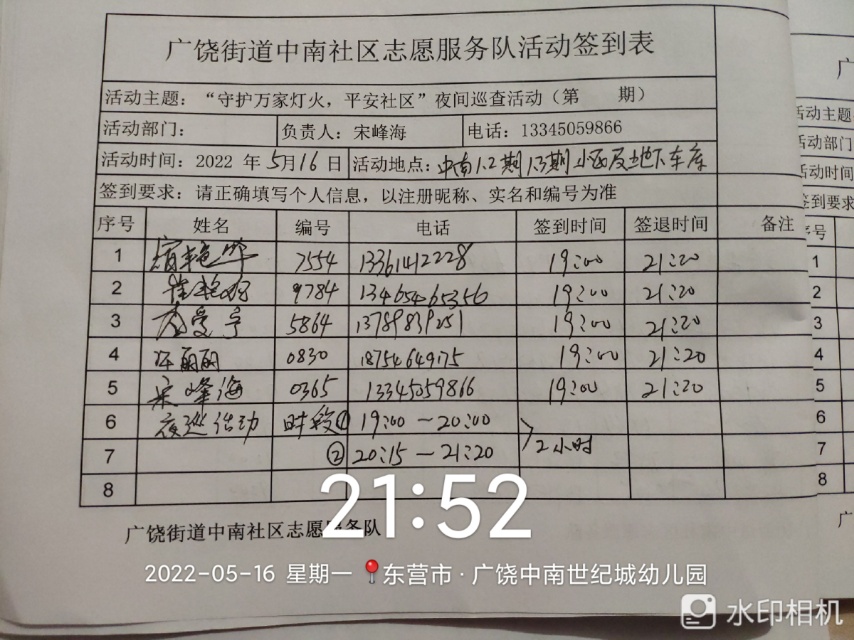 广饶街道中南社区志愿服务队活动签到表
活动主题：“守护万家灯火，平安社区”夜间巡查活动（第 期）
活动部门： 负责人：宋峰海 电话：13345059866
活动时间：2022 年 5月16日 活动地点：中南1.2期 1.3期 小区及地下车库
签到要求：请正确填写个人信息，以注册昵称、实名和编号为准
序号 姓名 编号 电话 签到时间 签退时间 备注
1 7554 13361412228 19:00 21:20
2 9784 13465465356 19:00 21:20
3 5864 13789839251 19:00 21:20
4 丽丽 0830 18754649175 19:00 21:20
5 宋峰海 0365 13345059866 19:00 21:20
6 夜巡活动 时段① 19:00－20:00
7 ② 20:15－21:20 2小时
8
广饶街道中南社区志愿服务队
21:52
2022-05-16 星期一 东营市·广饶中南世纪城幼儿园
水印相机
广
活动主题
活动部门
活动时间
签到要求
序号
1
2
3
4
5
6
7
8
广